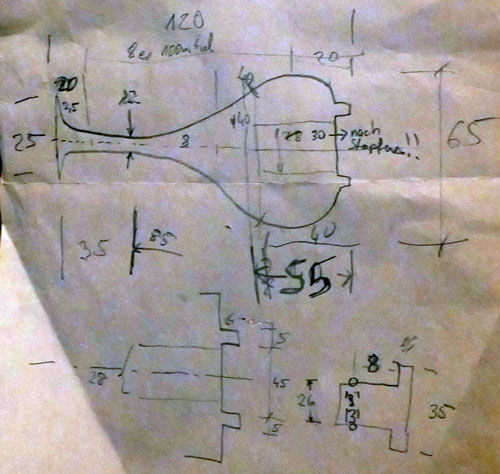 120
20
20
2,5
12
40
25
8
40
28 30
nach
Stopfen!!
65
35
85
40
55
6
5
28
45
5
8
26
35